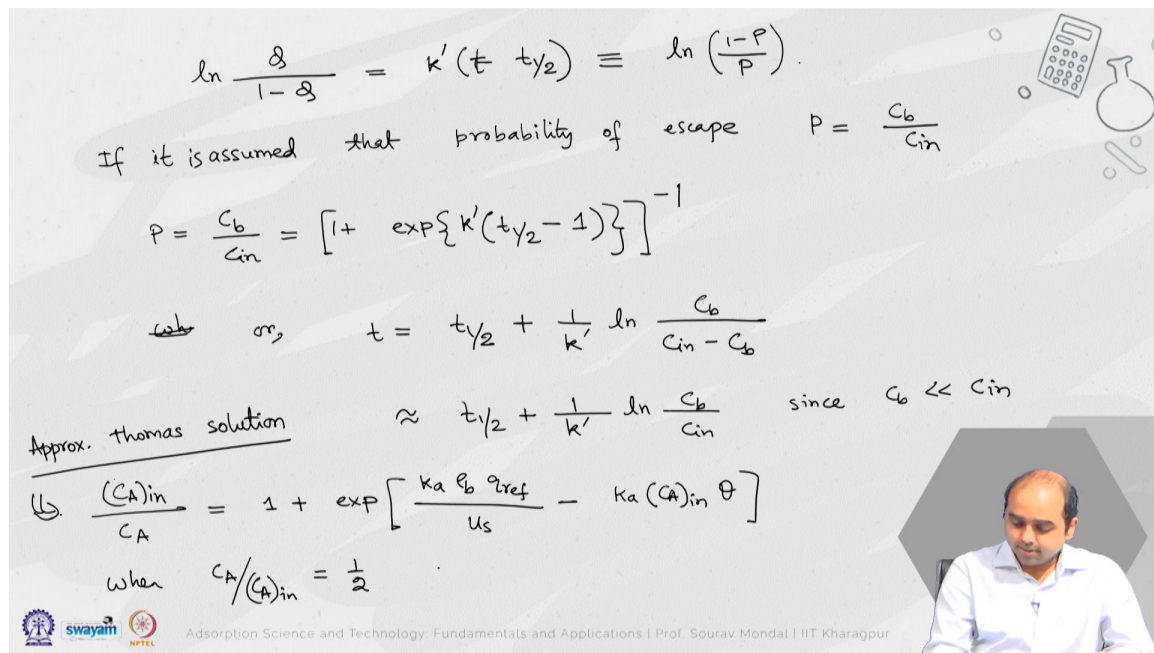 ln Q/(1-Q) = k'(t t1/2) ≡ ln ((1-P)/P).
If it is assumed that probability of escape P = Cb/Cin
P = Cb/Cin = [1+ exp{k'(t1/2 - 1)}]^-1
or, t = t1/2 + 1/k' ln Cb/(Cin - Cb)
≈ t1/2 + 1/k' ln Cb/Cin since Cb << Cin
Approx. thomas solution
(CA)in/CA = 1 + exp[ka ρb qref/us - ka (CA)in θ]
when CA/(CA)in = 1/2
swayam
NPTEL
Adsorption Science and Technology Fundamentals and Applications | Prof. Sourav Mondal | IIT Kharagpur